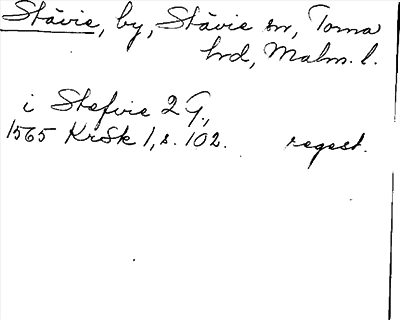 Stävie, by, Stävie sn, Torna
hd, Malm. l.
i Stefvie 2 G.,
1565 KrSk 1, s. 102. regest.